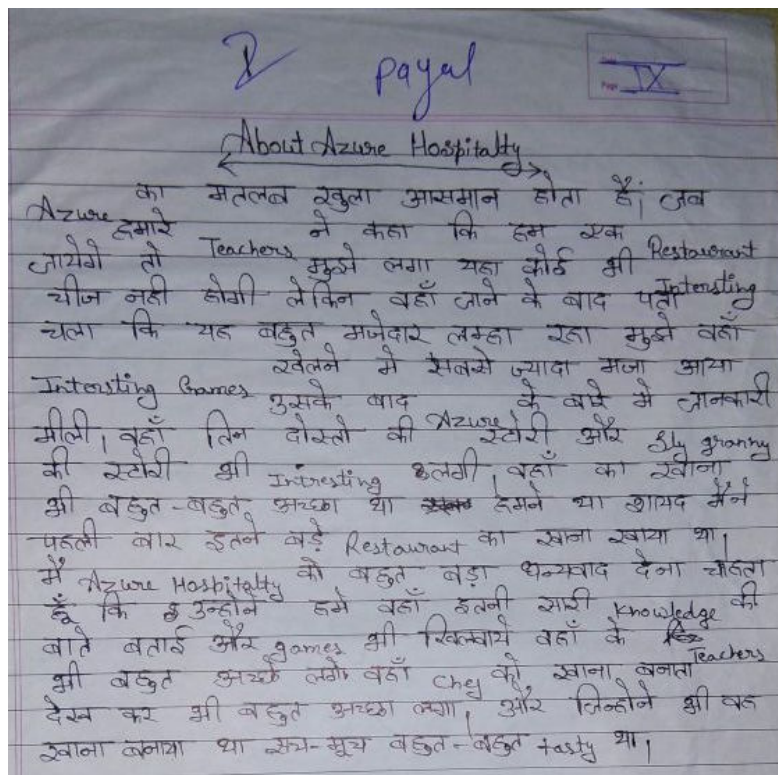 Payal
IX
About Azure Hospitalty
Azure का मतलब खुला आसमान होता है, जब
हमारे Teachers ने कहा कि हम एक Restaurant
जायेगे तो मुझे लगा यहा कोई भी Intersting
चीज नही होगी लेकिन वहाँ जाने के बाद पता
चला कि यह बहुत मजेदार लम्हा रहा मुझे वहाँ
Intersting Games खेलने मे सबसे ज्यादा मजा आया
उसके बाद Azure के बारे मे जानकारी
मीली, वहाँ तिन दोस्तो की स्टोरी और Sly granny
की स्टोरी भी Intresting लगी, वहाँ का खाना
भी बहुत-बहुत अच्छा था हमने था शायद मैने
पहली बार इतने बड़े Restaurant का खाना खाया था,
मैं Azure Hospitalty को बहुत बड़ा धन्यवाद देना चाहता
हूँ कि उन्होने हमे वहाँ इतनी सारी Knowledge की
बाते बताई और games भी खिलवाये वहाँ के Teachers
भी बहुत अच्छे लगे वहाँ chef को खाना बनाता
देख कर भी बहुत अच्छा लगा, और जिन्होने भी वह
खाना बनाया था सच-मूच बहुत-बहुत tasty था,